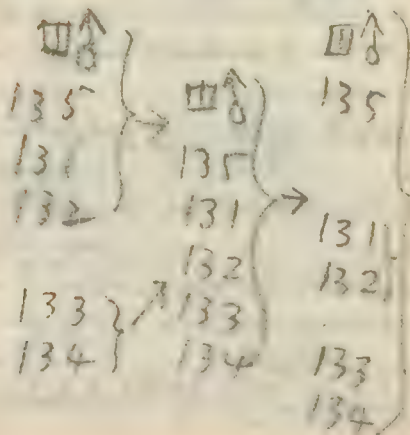 135
131
132
133
134
135
131
132
133
134
135
131
132
133
134